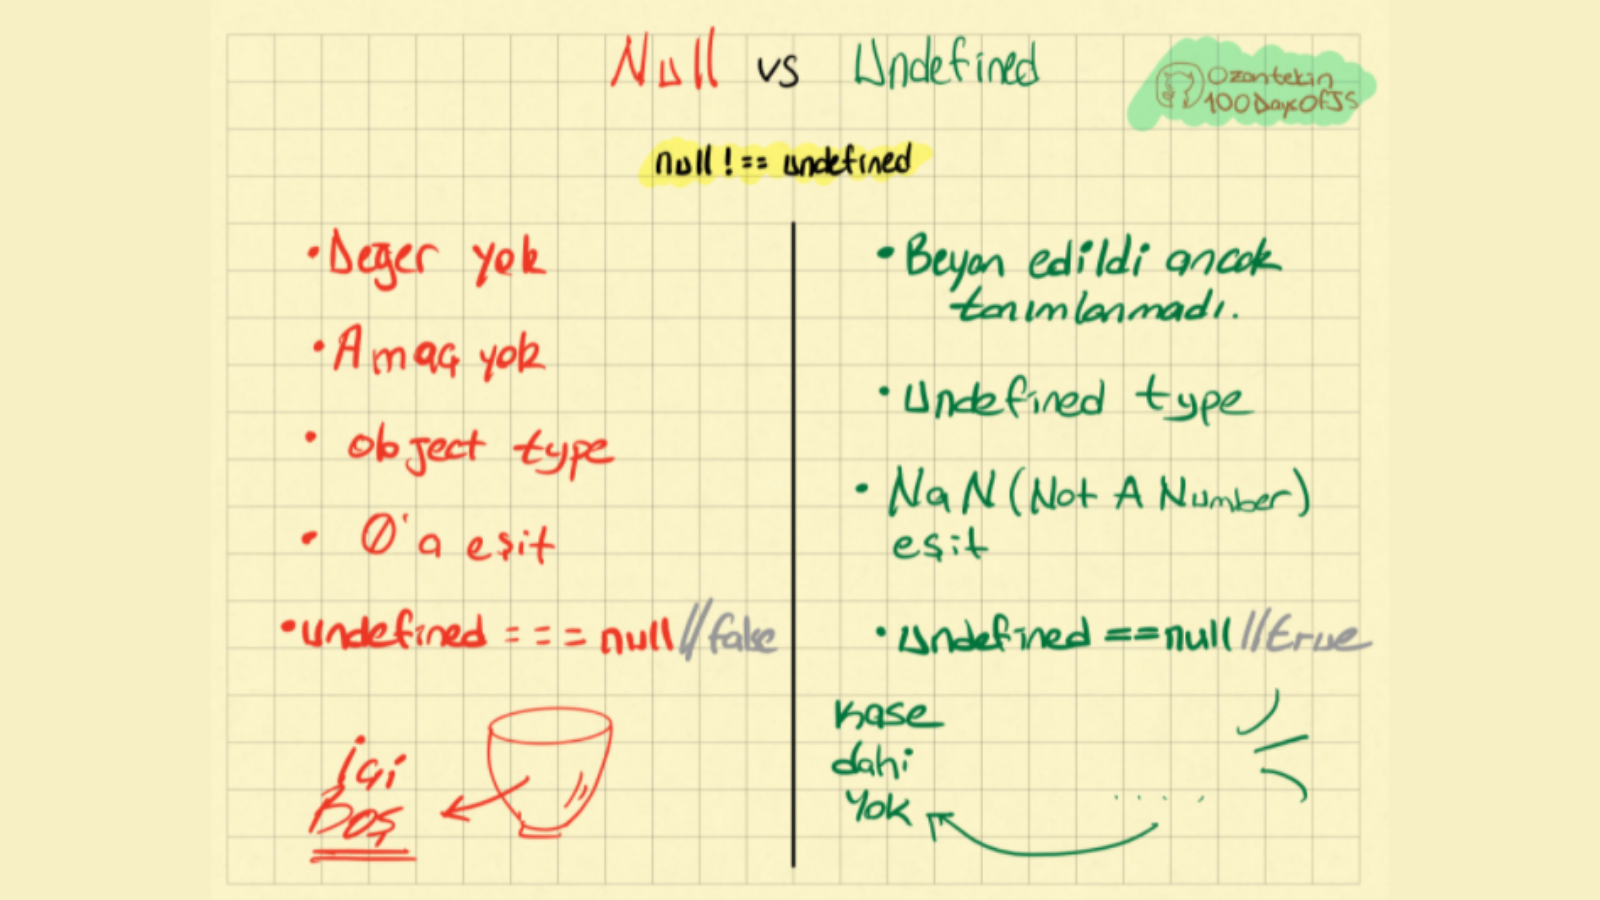 Null vs Undefined
Ozantekin
100DaysOfJS
null !== undefined
• Değer yok
• Amaç yok
• object type
• 0'a eşit
• undefined === null //false
İçi
Boş
• Beyan edildi ancak
tanımlanmadı.
• Undefined type
• NaN (Not A Number)
eşit
• Undefined == null //true
Kase
dahi
Yok